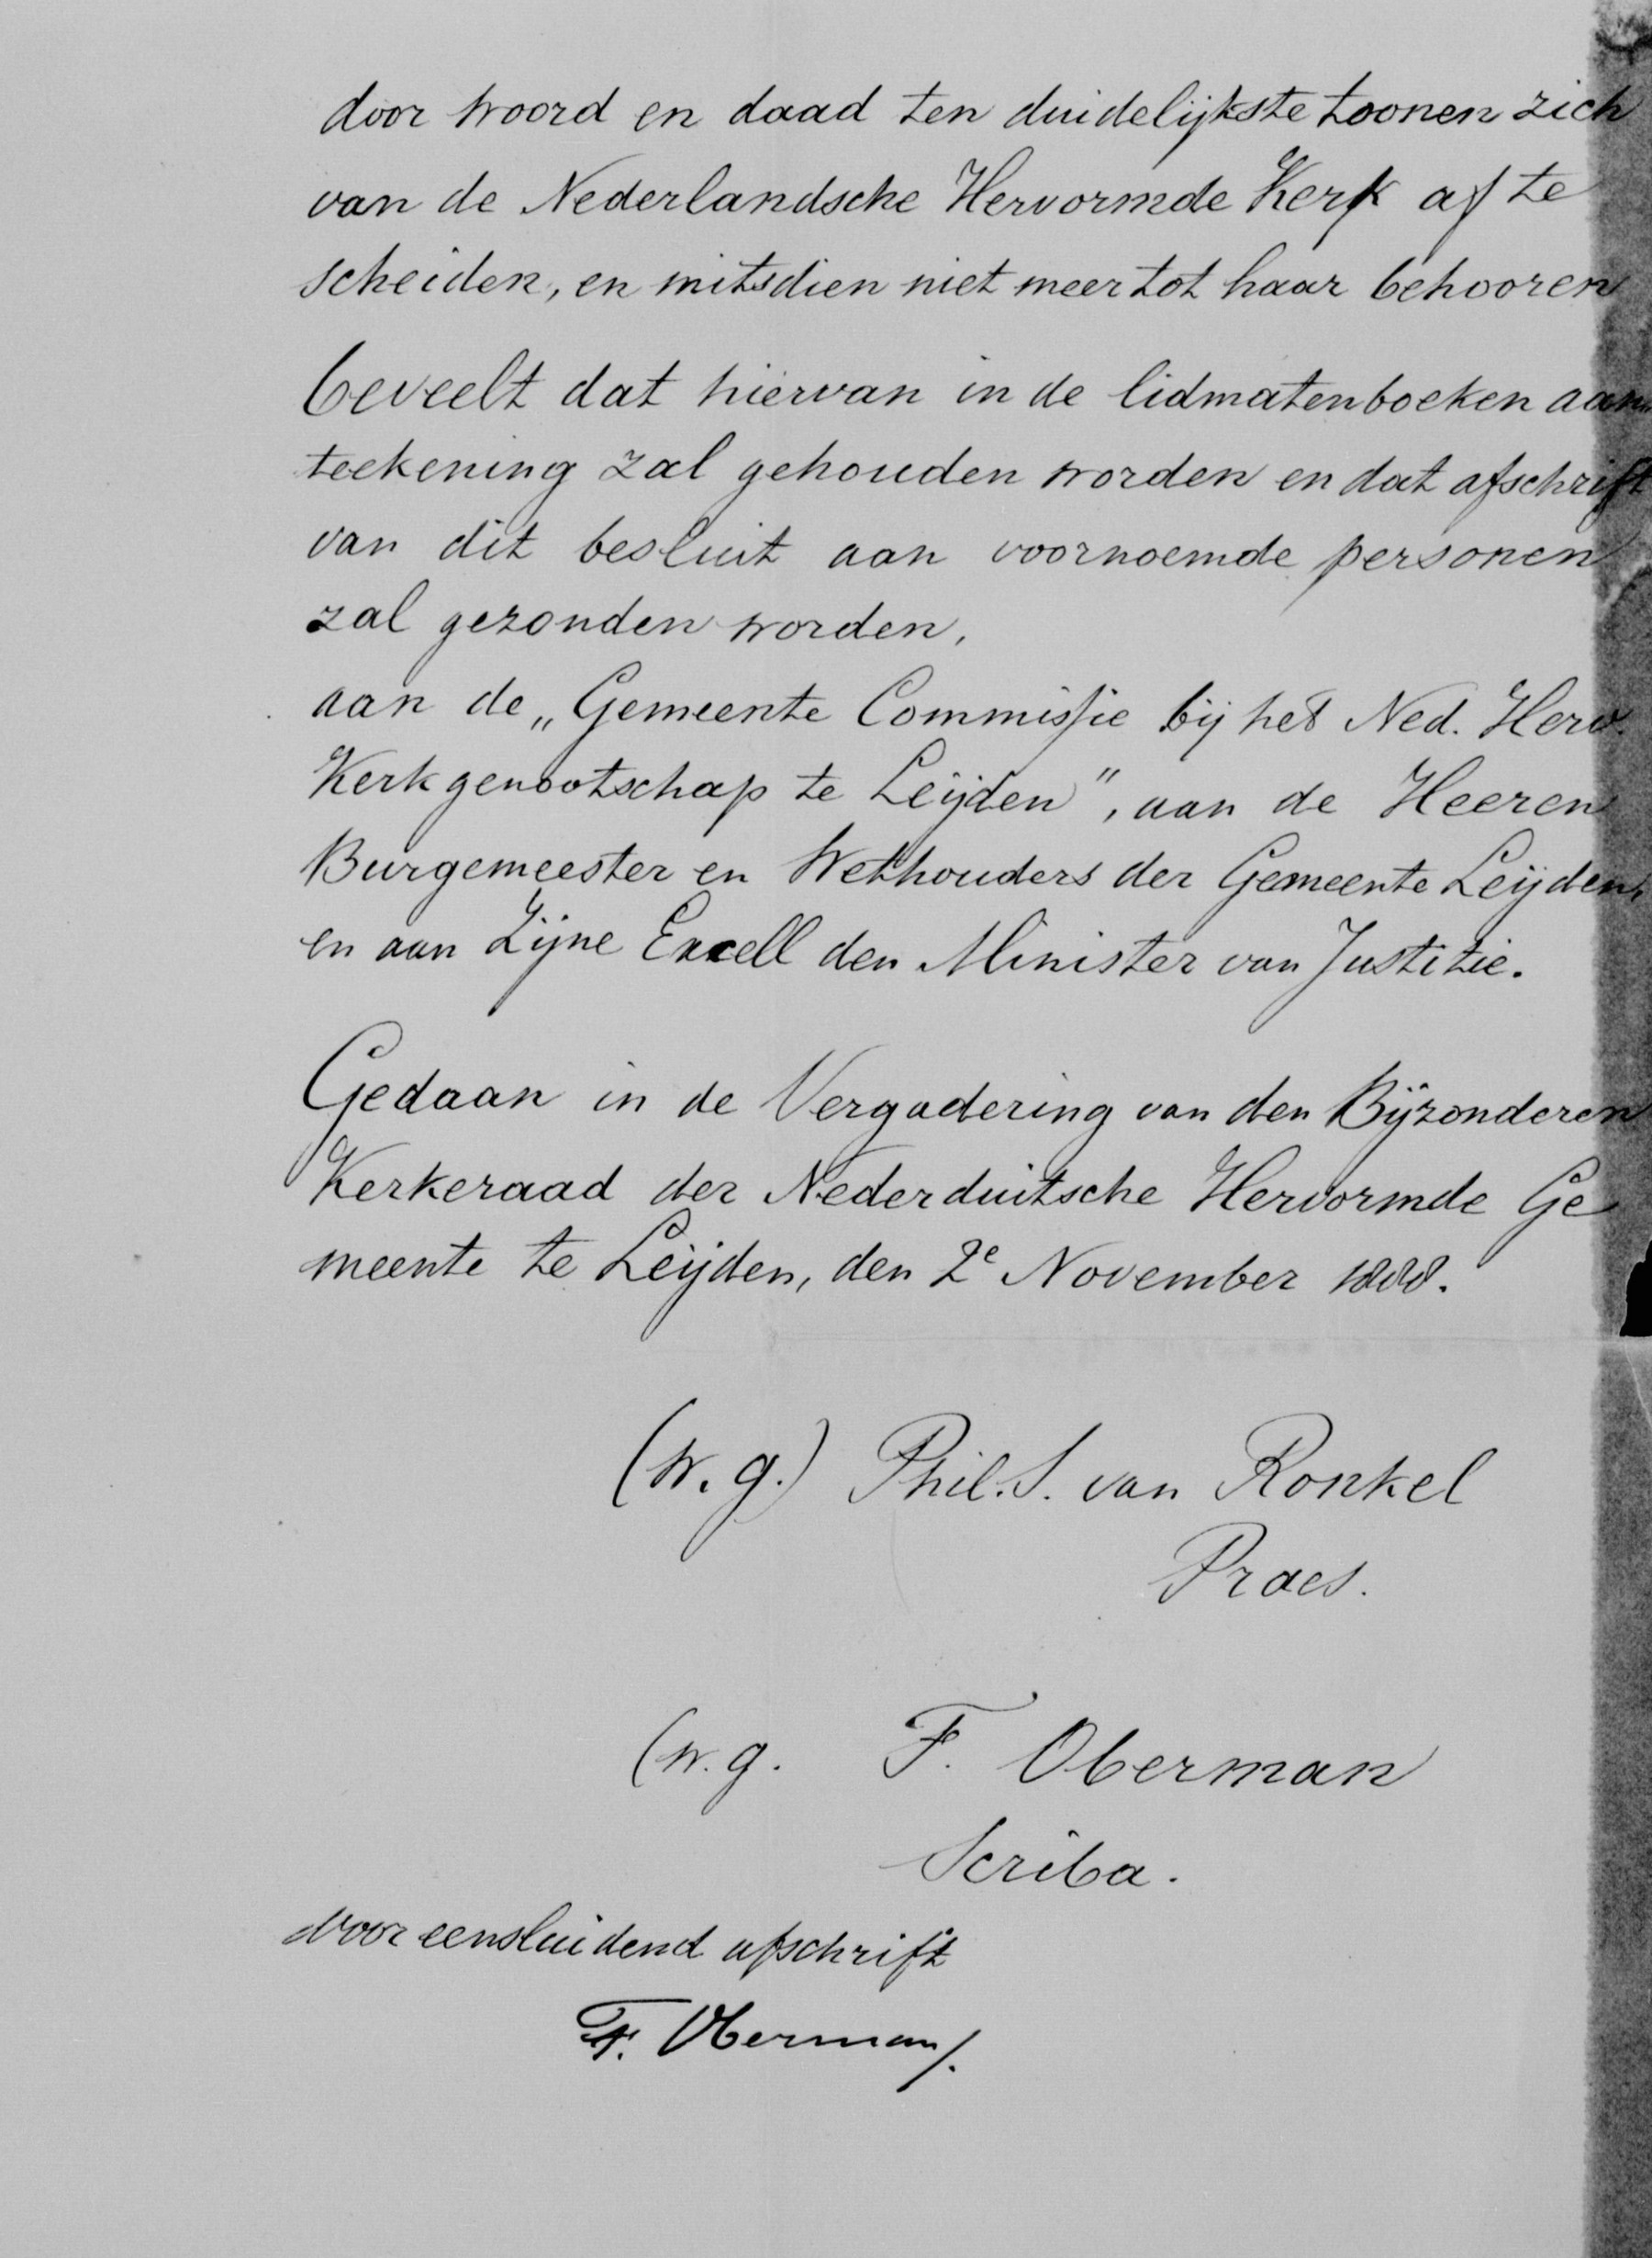 door woord en daad ten duidelijkste toonen zich
van de Nederlandsche Hervormde Kerk af te
scheiden, en mitsdien niet meer tot haar behooren
beveelt dat hiervan in de lidmatenboeken aan
teekening zal gehouden worden en dat afschrift
van dit besluit aan voornoemde personen
zal gezonden worden,
aan de „Gemeente Commissie bij het Ned. Herv.
Kerkgenootschap te Leijden", aan de Heeren
Burgemeester en Wethouders der Gemeente Leijden,
en aan Zijne Excell den Minister van Justitie.
Gedaan in de Vergadering van den Bijzonderen
Kerkeraad der Nederduitsche Hervormde Ge
meente te Leijden, den 2e November 1888.
(w.g.) Phil. S. van Ronkel
Praes.
(w.g. F. Oberman
Scriba.
voor eensluidend afschrift
F. Oberman.